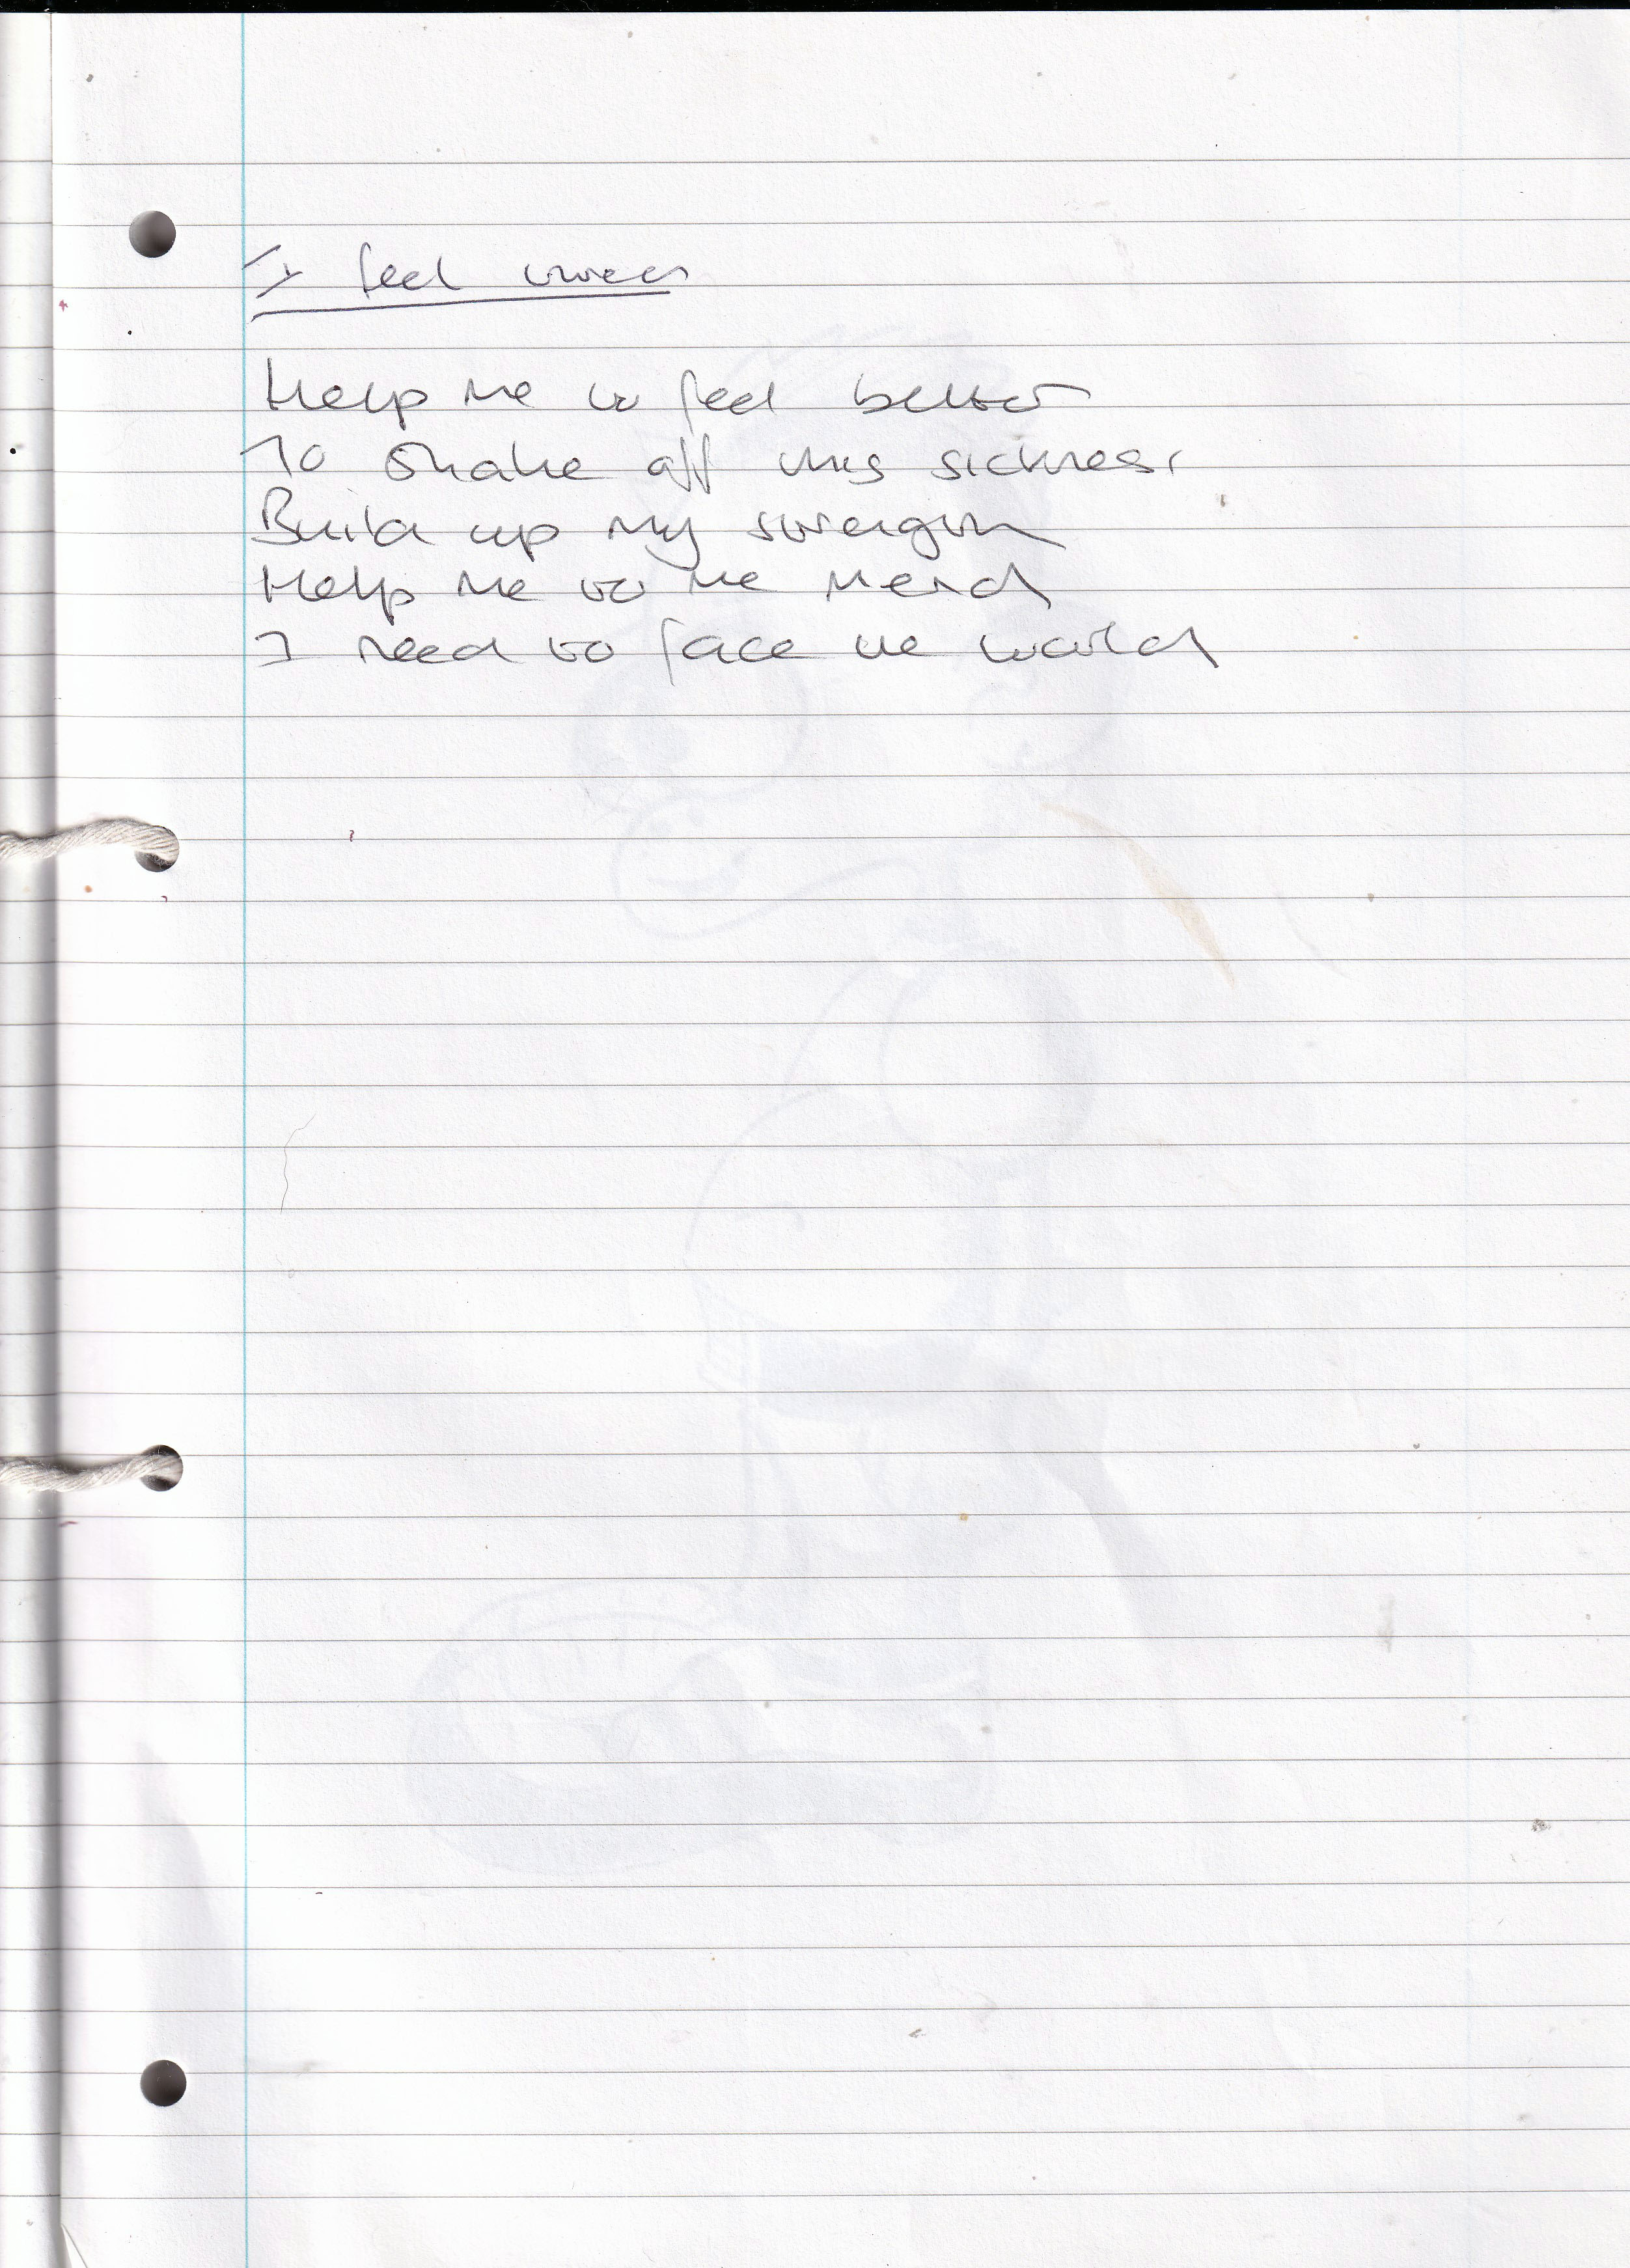 I feel
Help me to feel better
To shake off this sickness,
Build up my strength
Help me to me mend
I need to face the world